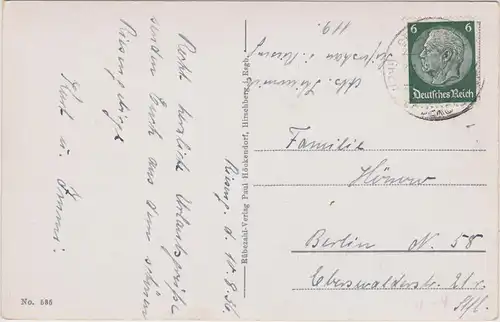 Recht herzliche Urlaubsgrüße
senden Euch aus dem schönen
Riesengebirge
Kurt u. Irmchen
Riesengb. d. 10.8.36.
Rübezahl-Verlag Paul Höckendorf, Hirschberg i. Rsgb.
No. 586
119.
6
6
Deutsches Reich
Familie
Hönow
Berlin N. 58
Eberswalderstr. 21 v.
Stfl.